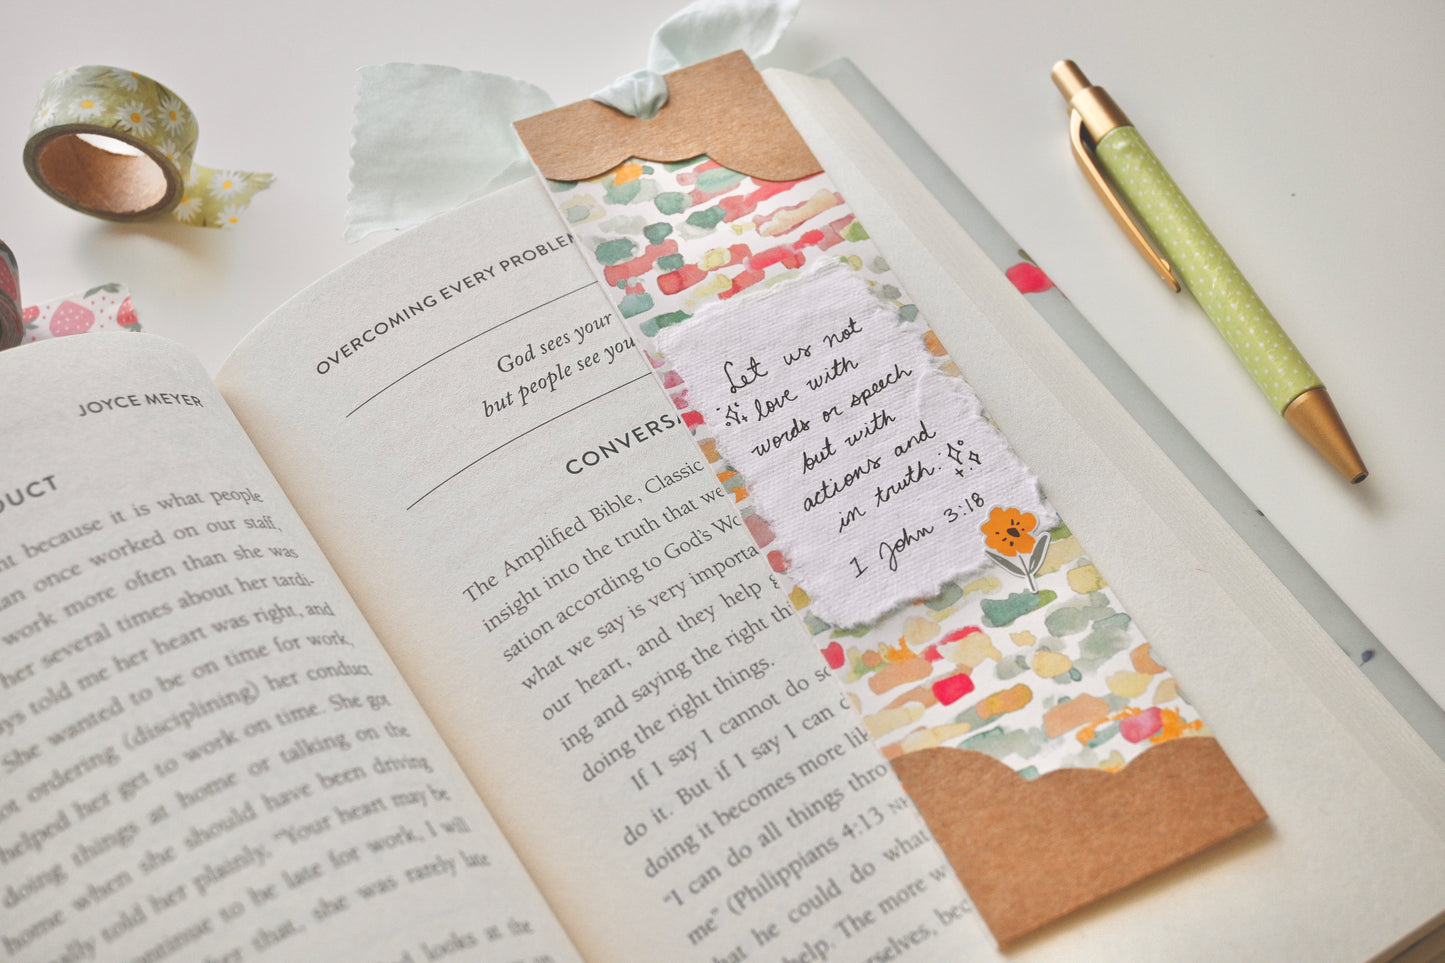 JOYCE MEYER
DUCT
nt because it is what people
an once worked on our staff,
work more often than she was
her several times about her tardi-
ys told me her heart was right, and
She wanted to be on time for work,
ot ordering (disciplining) her conduct
helped her get to work on time. She got
doing things at home or talking on the
home when she should have been driving
ally told her plainly, “Your heart may be
continue to be late for work, I will
that, she was rarely late
looks at the
OVERCOMING EVERY PROBLEM
God sees your
but people see you
CONVERSA
The Amplified Bible, Classic
insight into the truth that we
sation according to God’s Wo
what we say is very importa
our heart, and they help
ing and saying the right thi
doing the right things.
If I say I cannot do so
do it. But if I say I can
doing it becomes more lik
“I can do all things thro
me” (Philippians 4:13
hat he could do what
help. The more w
erselves, bec
Let us not
love with
words or speech
but with
actions and
in truth.
1 John 3:18